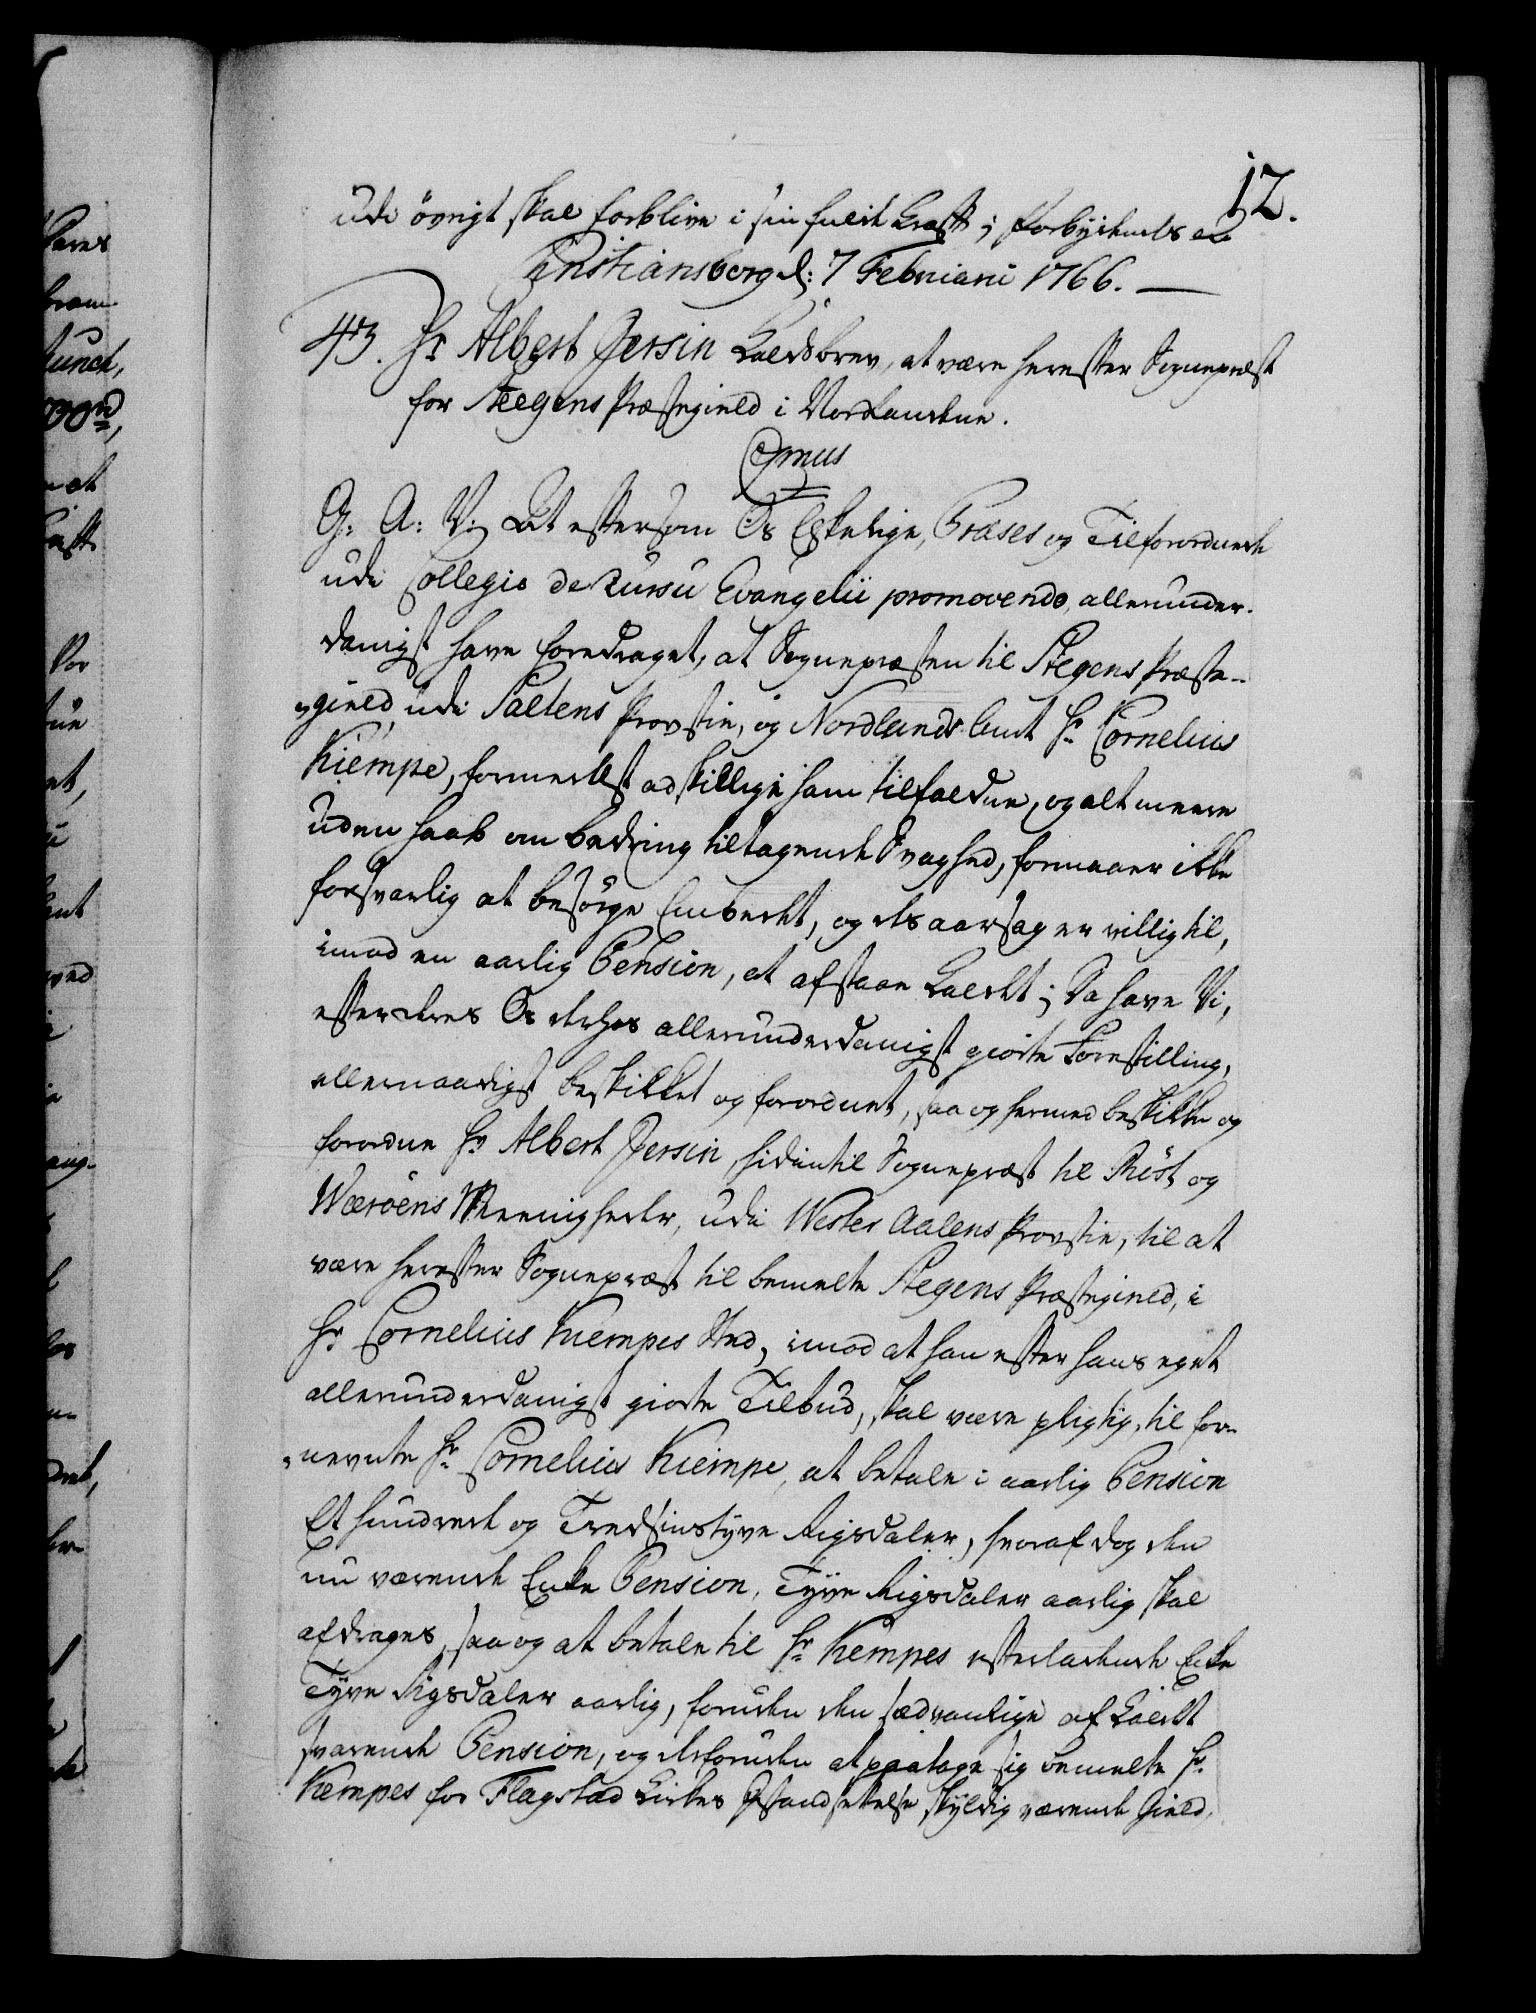 12.
udi övrigt skal forblive i sin fulde Kraft; Forbydendes etc
Christiansborg d: 7 Februarii 1766.
43. Hr Albert Jersin Kaldsbrev, at være herefter Sognepræst
for Steegens Præstegield i Nordlandene.
C7mus
G: A: V: At eftersom Os Elskelige, Præses og Tilforordnede
udi Collegio de Cursu Evangelii promovendo, allerunder-
danigst have foredraget, at Sognepræsten til Stegens Præste-
gield, udi Saltens Provstie, og Nordlands Amt Hr Cornelius
Kiempe, formedelst adskillige ham tilfaldne, og alt meere
uden Haab om bedring tiltagende Svaghed, formaaer ikke
forsvarlig at besørge Embedet, og des aarsag er villig til,
imod en aarlig Pension, at afstaae Kaldet; Da have Vi,
efter deres Os derhos allerunderdanigst giorte Forestilling,
allernaadigst beskikket og forordnet, saa og hermed beskikke og
forordne Hr Albert Jersin, hidintil Sognepræst til Röst og
Wæröens Meenigheder, udi Wester Aalens Provstie, til at
være herefter Sognepræst til bemelte Stegens Præstegield, i
Hr Cornelius Kiempes Sted, imod at han efter hans eget
allerunderdanigst giorte Tilbud, skal være pligtig, til for-
nevnte Hr Cornelius Kiempe, at betale i aarlig Pension
Et hundrede og Tredsindstyve Rigsdaler, hvoraf dog den
nu værende Enke Pension, Tyve Rigsdaler aarlig skal
afdrages, saa og at betale til Hr Kempes efterladende Enke
Tyve Rigsdaler aarlig, foruden den sædvanlige af Kaldet
svarende Pension, og desforuden at paatage sig bemelte Hr
Kempes for Flagstad Kirkes Istandsettelse skyldig værende Gield,